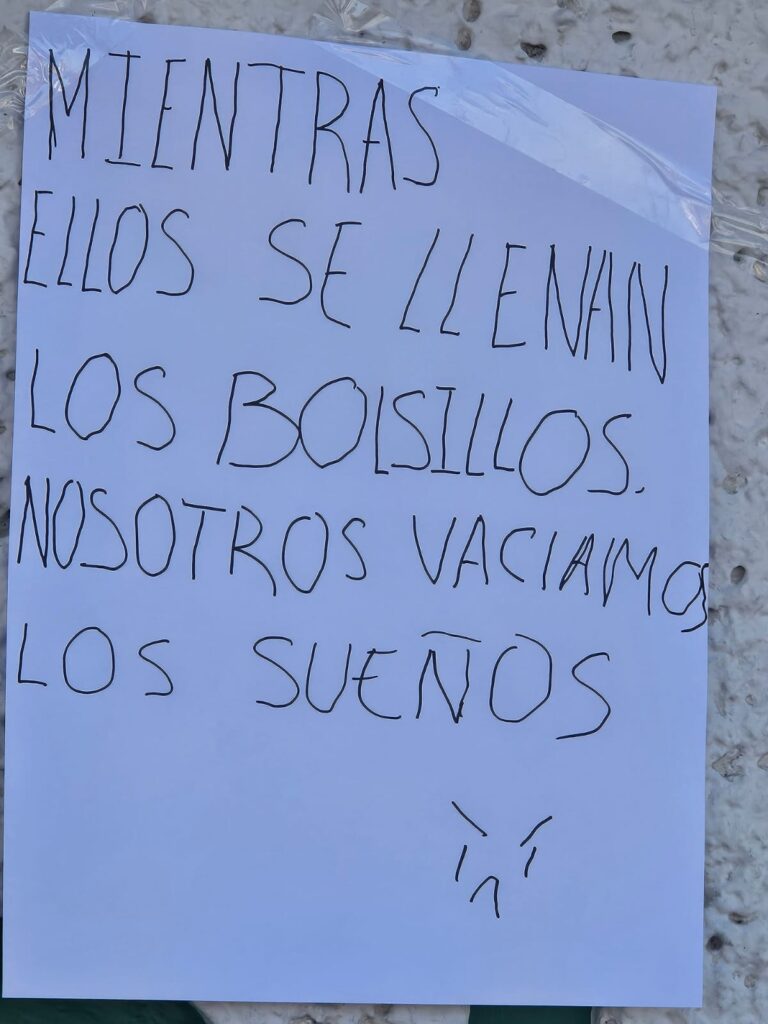 MIENTRAS
ELLOS SE LLENAN
LOS BOLSILLOS.
NOSOTROS VACIAMOS
LOS SUEÑOS